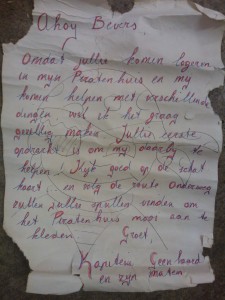 Ahoy Bevers
Omdat jullie komen logeren
in mijn Piratenhuis en mij
komen helpen met verschillende
dingen wil ik het graag
gezellig maken. Jullie eerste
opdracht is om mij daarbij te
helpen! Kijk goed op de schat
kaart en volg de route. Onderweg
zullen jullie spullen vinden om
het Piratenhuis mooi aan te
kleden.
Groet,
Kapitein Eenbaard
en zijn maten.